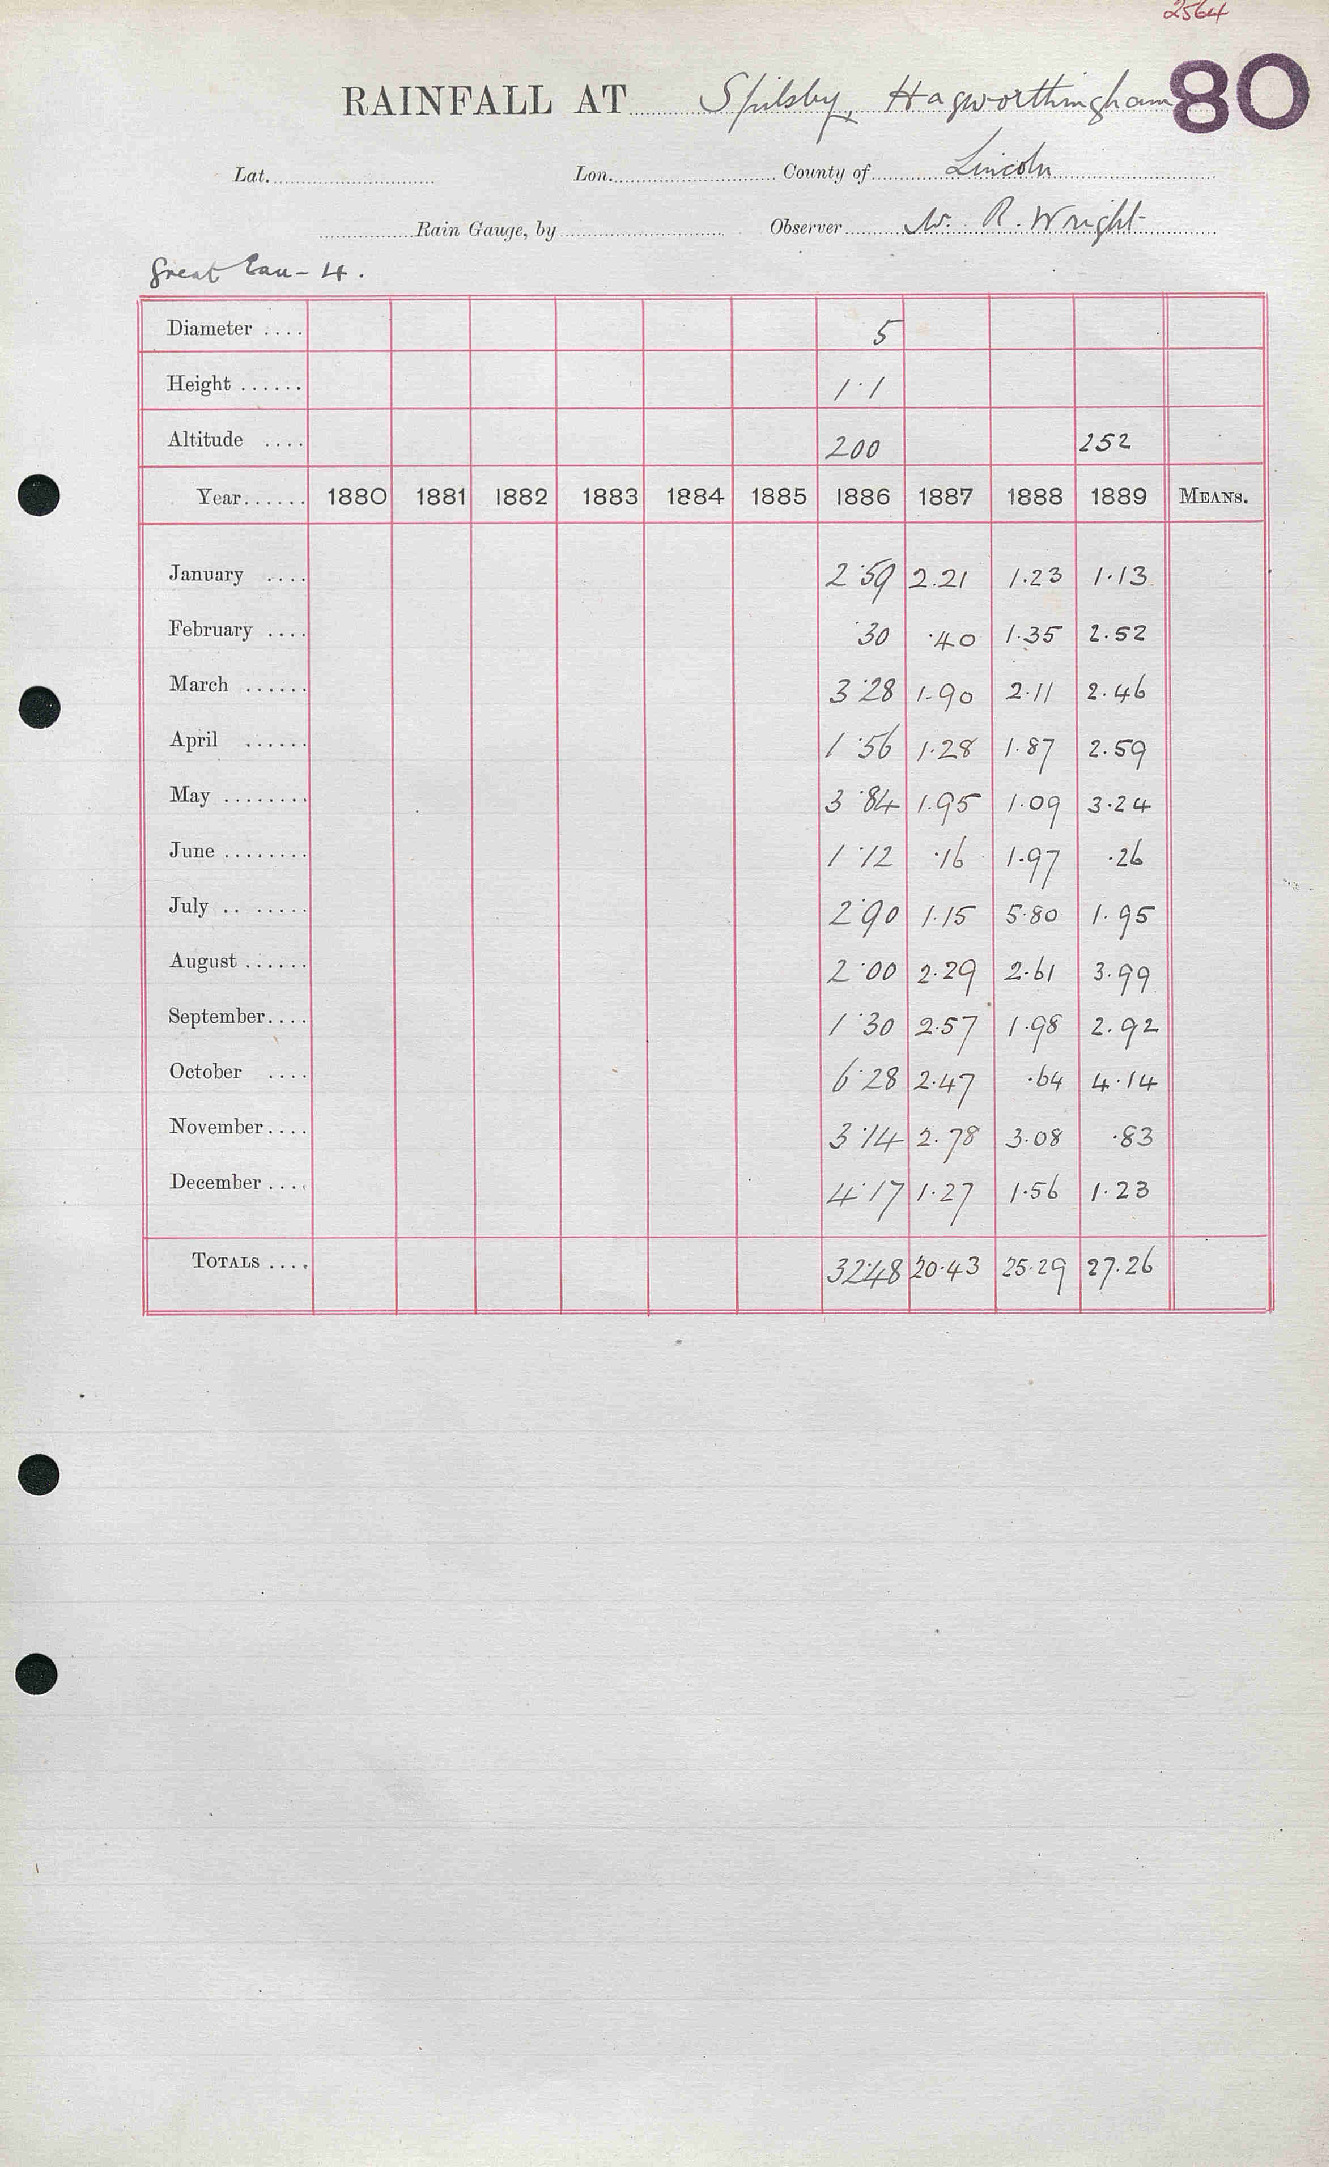 2564
RAINFALL AT Spilsby, Hagworthingham 80
Lat. Lon. County of Lincoln
Rain Gauge, by Observer W. R. Wright
Great Eau - 4.
Diameter .... 5
Height ...... 1·1
Altitude .... 200 252
Year...... 1880 1881 1882 1883 1884 1885 1886 1887 1888 1889 MEANS.
January .... 2·59 2.21 1.23 1.13
February .... ·30 ·40 1.35 2.52
March ...... 3·28 1.90 2.11 2.46
April ...... 1·56 1.28 1.87 2.59
May ........ 3·84 1.95 1.09 3.24
June ........ 1·12 ·16 1.97 ·26
July .. ..... 2·90 1.15 5.80 1.95
August ...... 2·00 2.29 2.61 3.99
September.... 1·30 2.57 1.98 2.92
October .... 6·28 2.47 ·64 4.14
November.... 3·14 2.78 3.08 ·83
December .... 4·17 1.27 1.56 1.23
TOTALS .... 32·48 20.43 25.29 27.26